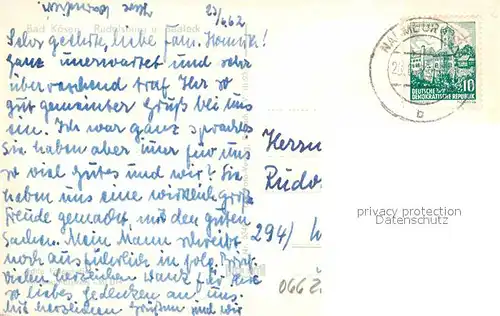 23/4 62
Bad Kösen Rudelsburg u. Saaleck
Sehr geehrte, liebe Fam.
Ganz unerwartet und sehr
überraschend traf Ihr so
gut gemeinter Gruß bei uns
ein. Ich war ganz sprachlos
Sie haben aber nur für uns
so viel Gutes und wir? Sie
haben uns eine wirklich große
Freude gemacht, mit den guten
Sachen. Mein Mann schreibt
noch ausführlich in folg. Brief.
Vielen herzlichen Dank für Ihr
so liebes Gedenken an uns.
Mit herzlichen Grüßen sind wir
NAUMBURG
b
DEUTSCHE
DEMOKRATISCHE REPUBLIK
10
Herrn
Rudo
294/
privacy protection
Datenschutz
066